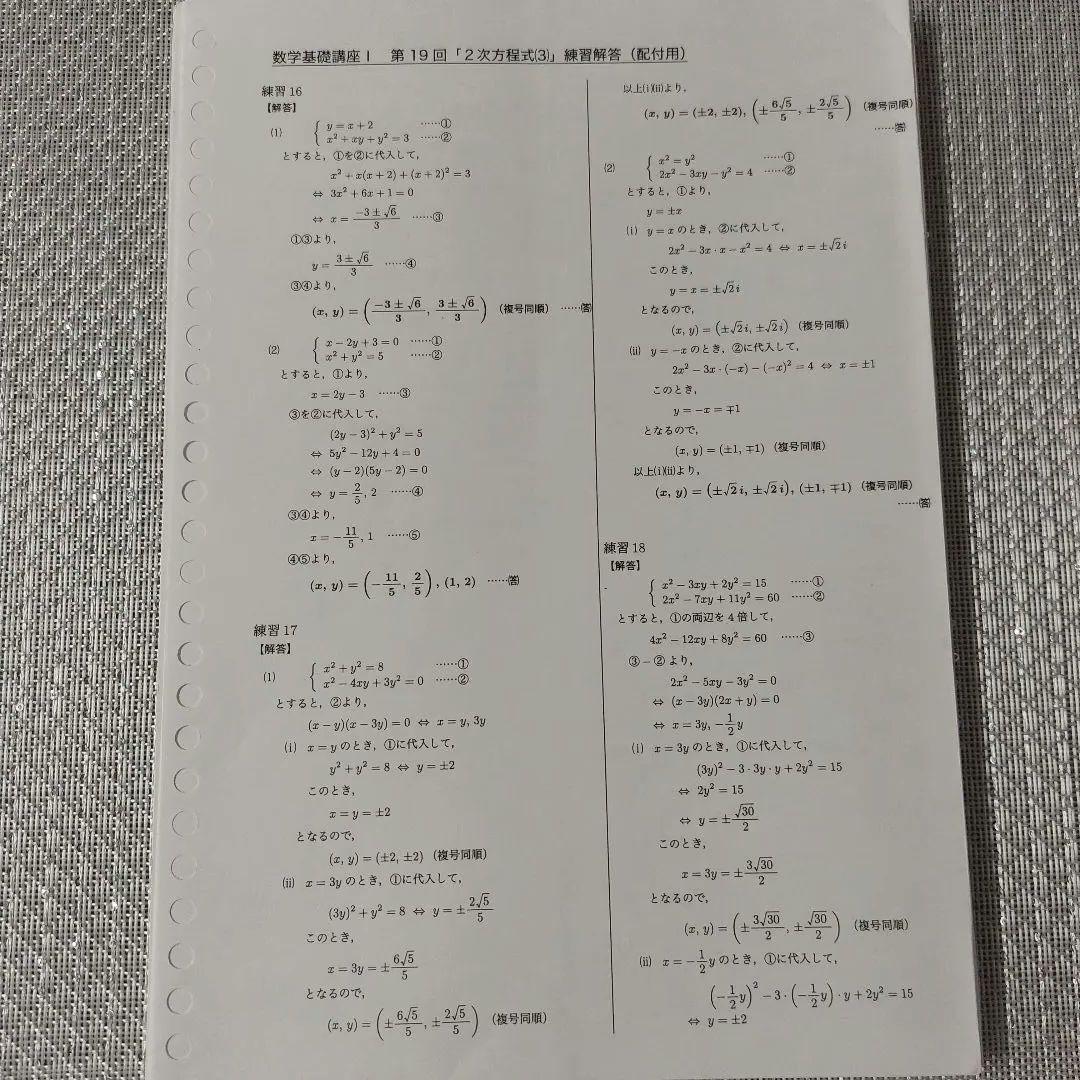 数学基礎講座Ⅰ 第19回「2次方程式(3)」練習解答（配付用）
練習16
【解答】
(1) { y = x + 2 ……①
x² + xy + y² = 3 ……②
とすると，①を②に代入して，
x² + x(x + 2) + (x + 2)² = 3
⇔ 3x² + 6x + 1 = 0
⇔ x = (−3 ± √6)/3 ……③
①③より，
y = (3 ± √6)/3 ……④
③④より，
(x, y) = ((−3 ± √6)/3, (3 ± √6)/3)（複号同順） ……答
(2) { x − 2y + 3 = 0 ……①
x² + y² = 5 ……②
とすると，①より，
x = 2y − 3 ……③
③を②に代入して，
(2y − 3)² + y² = 5
⇔ 5y² − 12y + 4 = 0
⇔ (y − 2)(5y − 2) = 0
⇔ y = 2/5, 2 ……④
③④より，
x = −11/5, 1 ……⑤
④⑤より，
(x, y) = (−11/5, 2/5), (1, 2) ……答
練習17
【解答】
(1) { x² + y² = 8 ……①
x² − 4xy + 3y² = 0 ……②
とすると，②より，
(x − y)(x − 3y) = 0 ⇔ x = y, 3y
(i) x = y のとき，①に代入して，
y² + y² = 8 ⇔ y = ±2
このとき，
x = y = ±2
となるので，
(x, y) = (±2, ±2)（複号同順）
(ii) x = 3y のとき，①に代入して，
(3y)² + y² = 8 ⇔ y = ±2√5/5
このとき，
x = 3y = ±6√5/5
となるので，
(x, y) = (±6√5/5, ±2√5/5)（複号同順）
以上(i)(ii)より，
(x, y) = (±2, ±2), (±6√5/5, ±2√5/5)（複号同順）
……答
(2) { x² = y² ……①
2x² − 3xy − y² = 4 ……②
とすると，①より，
y = ±x
(i) y = x のとき，②に代入して，
2x² − 3x · x − x² = 4 ⇔ x = ±√2 i
このとき，
y = x = ±√2 i
となるので，
(x, y) = (±√2 i, ±√2 i)（複号同順）
(ii) y = −x のとき，②に代入して，
2x² − 3x · (−x) − (−x)² = 4 ⇔ x = ±1
このとき，
y = −x = ∓1
となるので，
(x, y) = (±1, ∓1)（複号同順）
以上(i)(ii)より，
(x, y) = (±√2 i, ±√2 i), (±1, ∓1)（複号同順）
……答
練習18
【解答】
{ x² − 3xy + 2y² = 15 ……①
2x² − 7xy + 11y² = 60 ……②
とすると，①の両辺を4倍して，
4x² − 12xy + 8y² = 60 ……③
③ − ② より，
2x² − 5xy − 3y² = 0
⇔ (x − 3y)(2x + y) = 0
⇔ x = 3y, −1/2 y
(i) x = 3y のとき，①に代入して，
(3y)² − 3 · 3y · y + 2y² = 15
⇔ 2y² = 15
⇔ y = ±√30/2
このとき，
x = 3y = ±3√30/2
となるので，
(x, y) = (±3√30/2, ±√30/2)（複号同順）
(ii) x = −1/2 y のとき，①に代入して，
(−1/2 y)² − 3 · (−1/2 y) · y + 2y² = 15
⇔ y = ±2